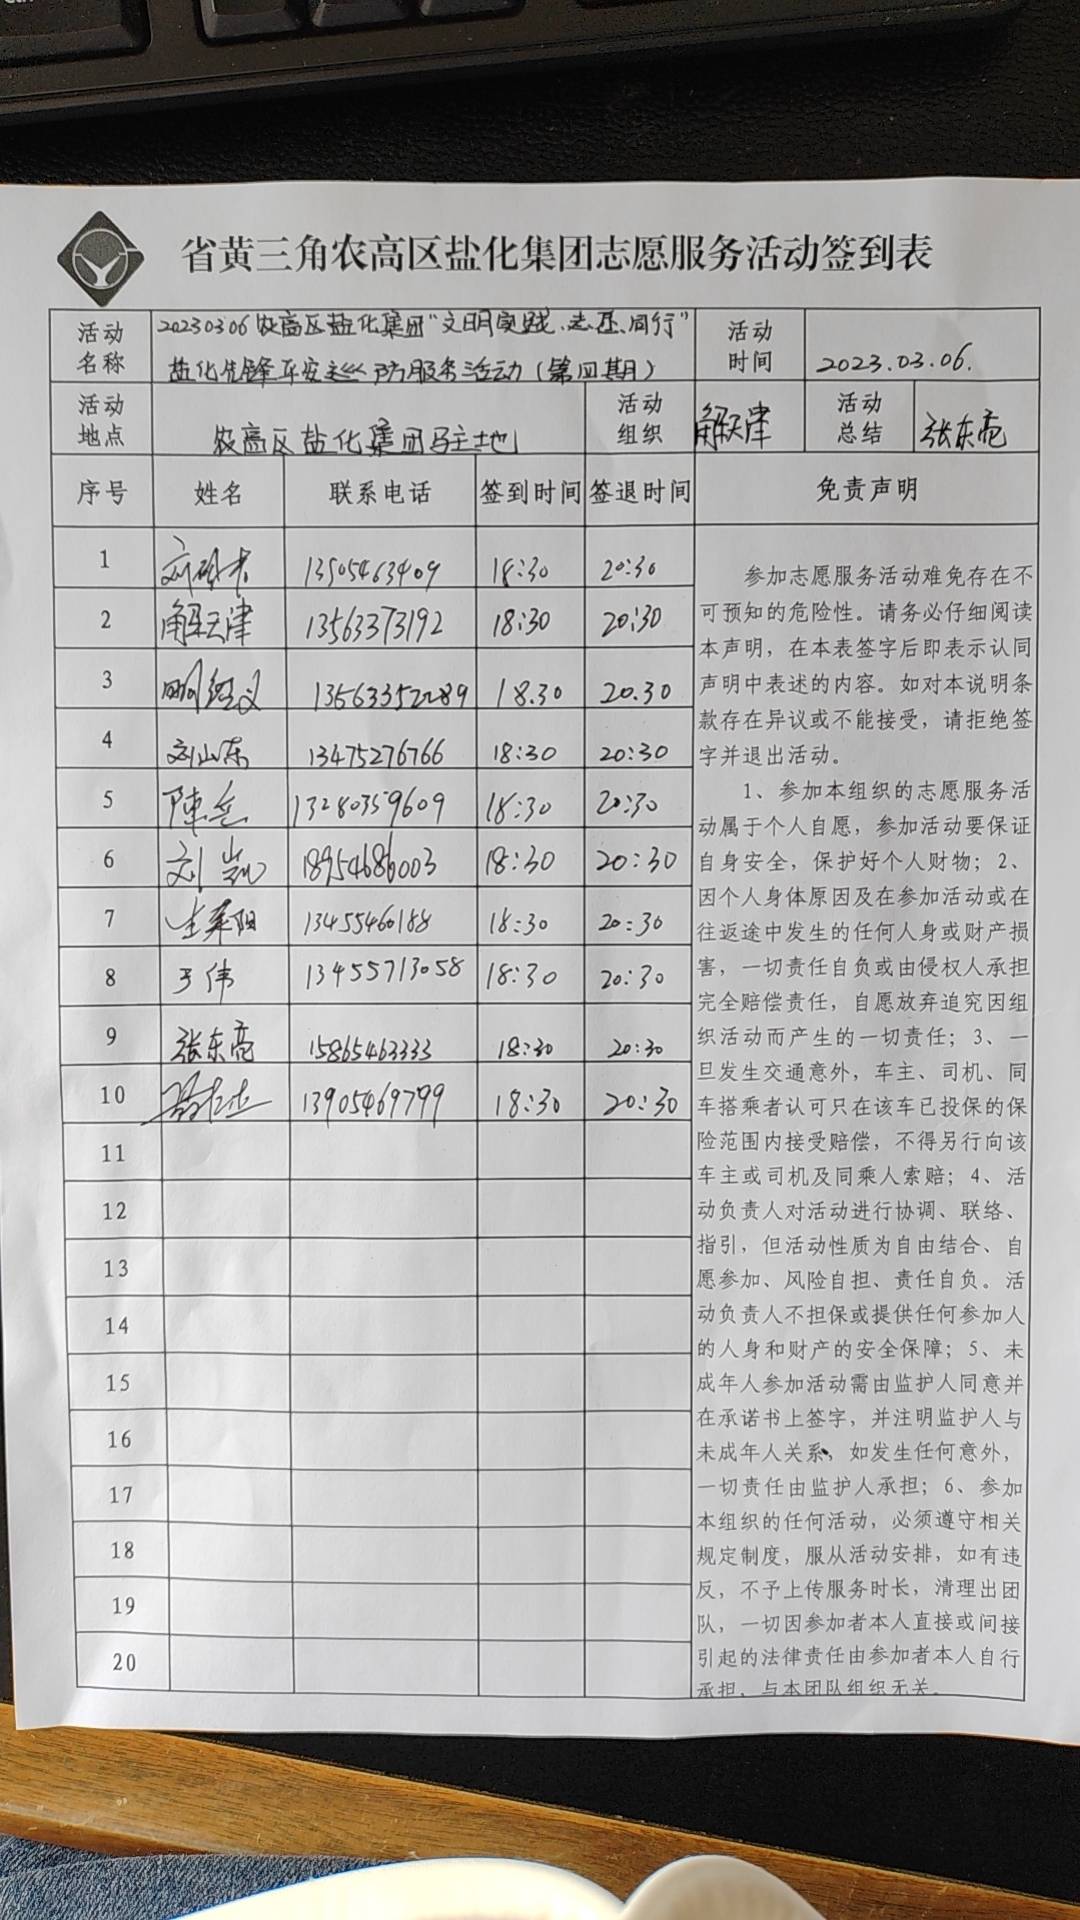 省黄三角农高区盐化集团志愿服务活动签到表
活动名称 20230306农高区盐化集团"文明实践、志愿同行"
盐化先锋平安巡防服务活动(第四期) 活动时间 2023.03.06.
活动地点 农高区盐化集团驻地 活动组织 解天津 活动总结 张东亮
序号 姓名 联系电话 签到时间 签退时间 免责声明
1 13505463409 18:30 20:30
2 解天津 13563373192 18:30 20:30
3 13563352289 18.30 20.30
4 刘山东 13475276766 18:30 20:30
5 陳岳 13280359609 18:30 20:30
6 刘凯 18954686003 18:30 20:30
7 13455460188 18:30 20:30
8 于伟 13455713058 18:30 20:30
9 张东亮 15865463333 18:30 20:30
10 13905469799 18:30 20:30
11
12
13
14
15
16
17
18
19
20
参加志愿服务活动难免存在不
可预知的危险性。请务必仔细阅读
本声明,在本表签字后即表示认同
声明中表述的内容。如对本说明条
款存在异议或不能接受,请拒绝签
字并退出活动。
1、参加本组织的志愿服务活
动属于个人自愿,参加活动要保证
自身安全,保护好个人财物;2、
因个人身体原因及在参加活动或在
往返途中发生的任何人身或财产损
害,一切责任自负或由侵权人承担
完全赔偿责任,自愿放弃追究因组
织活动而产生的一切责任;3、一
旦发生交通意外,车主、司机、同
车搭乘者认可只在该车已投保的保
险范围内接受赔偿,不得另行向该
车主或司机及同乘人索赔;4、活
动负责人对活动进行协调、联络、
指引,但活动性质为自由结合、自
愿参加、风险自担、责任自负。活
动负责人不担保或提供任何参加人
的人身和财产的安全保障;5、未
成年人参加活动需由监护人同意并
在承诺书上签字,并注明监护人与
未成年人关系,如发生任何意外,
一切责任由监护人承担;6、参加
本组织的任何活动,必须遵守相关
规定制度,服从活动安排,如有违
反,不予上传服务时长,清理出团
队,一切因参加者本人直接或间接
引起的法律责任由参加者本人自行
承担,与本团队组织无关。